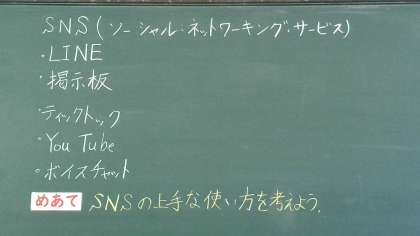 SNS(ソーシャル・ネットワーキング・サービス)
・LINE
・掲示板
・ティックトック
・YouTube
・ボイスチャット
めあて SNSの上手な使い方を考えよう。